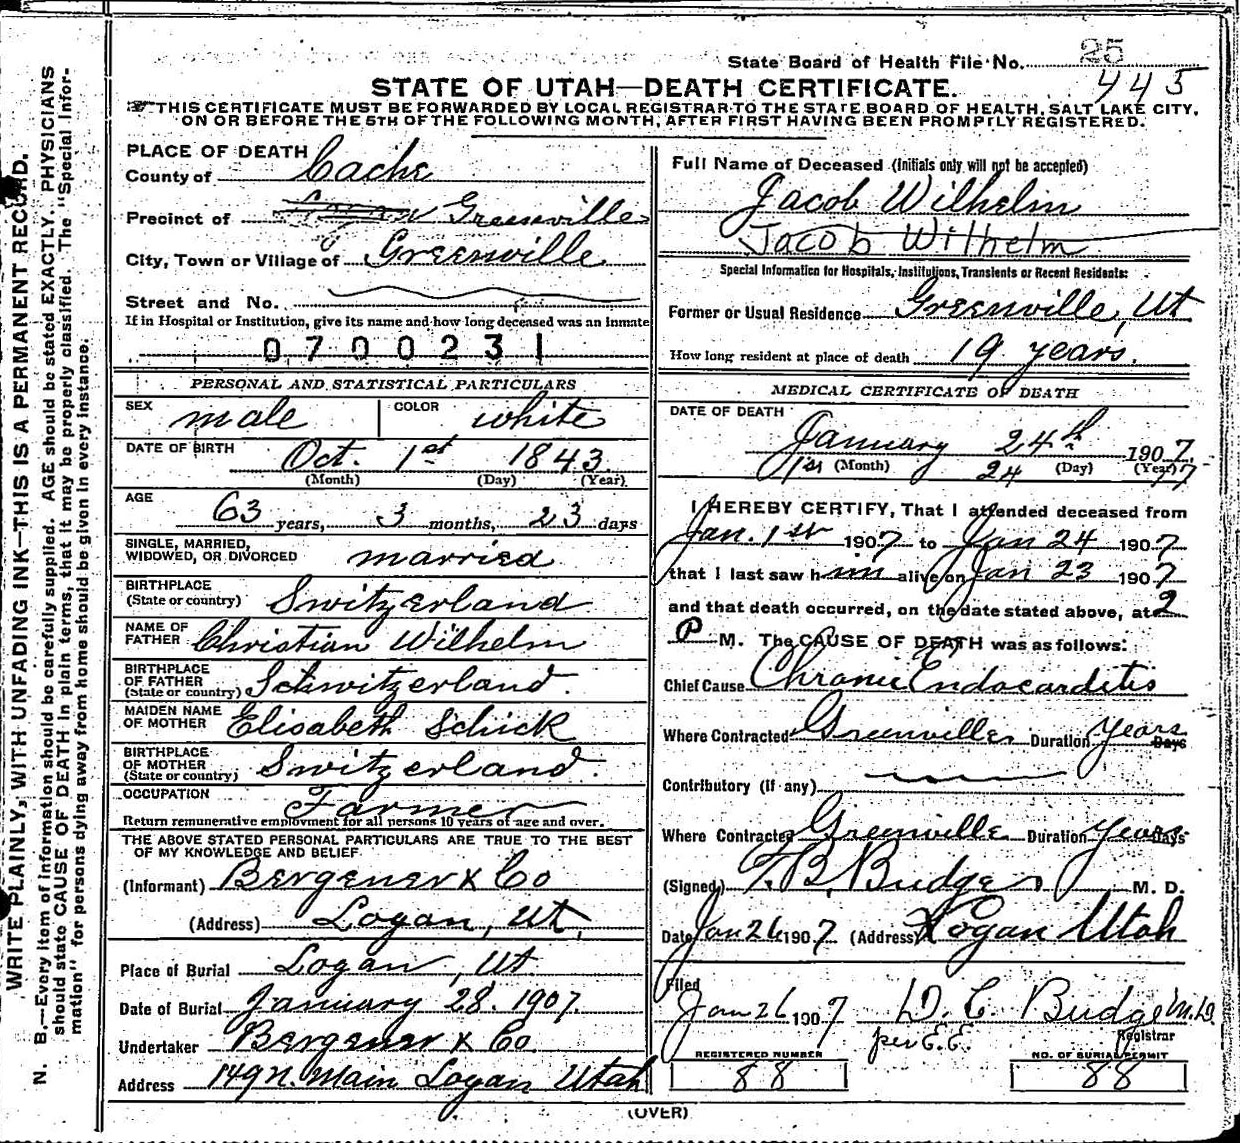 25
State Board of Health File No. 445
STATE OF UTAH—DEATH CERTIFICATE.
THIS CERTIFICATE MUST BE FORWARDED BY LOCAL REGISTRAR TO THE STATE BOARD OF HEALTH, SALT LAKE CITY,
ON OR BEFORE THE 5TH OF THE FOLLOWING MONTH, AFTER FIRST HAVING BEEN PROMPTLY REGISTERED.
WRITE PLAINLY, WITH UNFADING INK—THIS IS A PERMANENT RECORD.
N. B.—Every item of information should be carefully supplied. AGE should be stated EXACTLY. PHYSICIANS
should state CAUSE OF DEATH in plain terms, that it may be properly classified. The "Special Infor-
mation" for persons dying away from home should be given in every instance.
PLACE OF DEATH
County of Cache
Precinct of Greenville
City, Town or Village of Greenville
Street and No.
If in Hospital or Institution, give its name and how long deceased was an inmate
0700231
PERSONAL AND STATISTICAL PARTICULARS
SEX male COLOR white
DATE OF BIRTH Oct. 1st 1843
(Month) (Day) (Year)
AGE 63 years, 3 months, 23 days
SINGLE, MARRIED,
WIDOWED, OR DIVORCED married
BIRTHPLACE
(State or country) Switzerland
NAME OF
FATHER Christian Wilhelm
BIRTHPLACE
OF FATHER
(State or country) Schwitzerland.
MAIDEN NAME
OF MOTHER Elisabeth Schick
BIRTHPLACE
OF MOTHER
(State or country) Switzerland.
OCCUPATION
Farmer
Return remunerative employment for all persons 10 years of age and over.
THE ABOVE STATED PERSONAL PARTICULARS ARE TRUE TO THE BEST
OF MY KNOWLEDGE AND BELIEF
(Informant) Bergener & Co
(Address) Logan, Ut.
Place of Burial Logan, Ut
Date of Burial January 28. 1907.
Undertaker Bergener & Co.
Address 149 N. Main Logan Utah
Full Name of Deceased (Initials only will not be accepted)
Jacob Wilhelm
Jacob Wilhelm
Special Information for Hospitals, Institutions, Transients or Recent Residents:
Former or Usual Residence Greenville, Ut
How long resident at place of death 19 years.
MEDICAL CERTIFICATE OF DEATH
DATE OF DEATH
January 24th 1907.
(Month) 24 (Day) (Year)
I HEREBY CERTIFY, That I attended deceased from
Jan. 1st 1907 to Jan 24 1907
that I last saw him alive on Jan 23 1907
and that death occurred, on the date stated above, at 2
P M. The CAUSE OF DEATH was as follows:
Chief Cause Chronic Endocarditis
Where Contracted Greenville Duration years Days
Contributory (if any)
Where Contracted Greenville Duration years Days
(Signed) T. B. Budge M. D.
Date Jan 26 1907 (Address) Logan Utah
Filed
Jan 26 1907 D. C. Budge M.D.
per E.E. Registrar
REGISTERED NUMBER
88
NO. OF BURIAL PERMIT
88
(OVER)